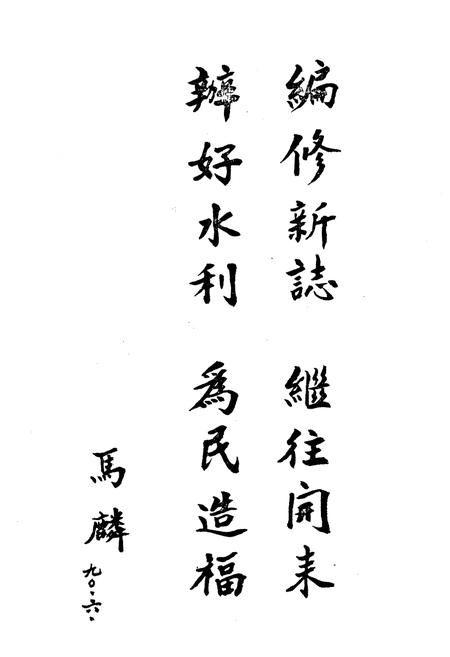 編修新誌 繼往開来
辦好水利 為民造福
馬麟
九〇、六、